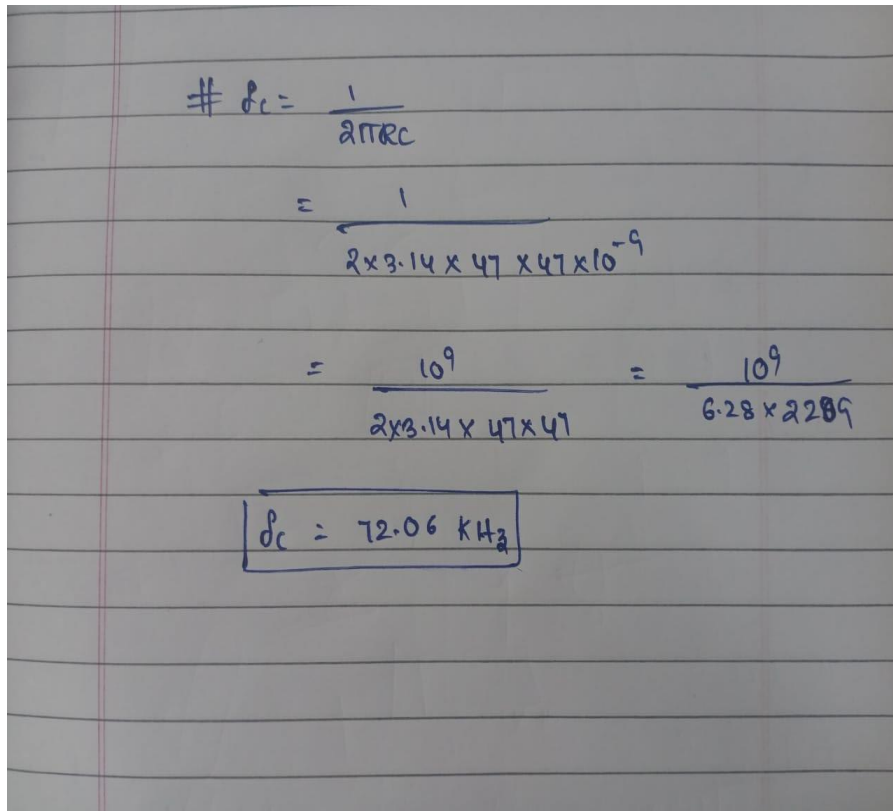 # fc = 1 / 2πRC
= 1 / 2×3.14 × 47 ×47×10⁻⁹
= 10⁹ / 2×3.14 × 47×47 = 10⁹ / 6.28 × 2289
fc = 72.06 KHz